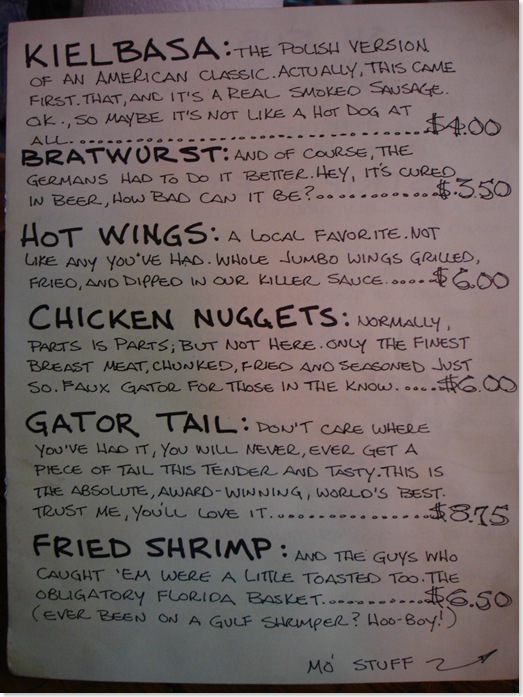 KIELBASA: THE POLISH VERSION
OF AN AMERICAN CLASSIC. ACTUALLY, THIS CAME
FIRST. THAT, AND IT'S A REAL SMOKED SAUSAGE.
OK., SO MAYBE IT'S NOT LIKE A HOT DOG AT
ALL. .......................................... $4.00
BRATWURST: AND OF COURSE, THE
GERMANS HAD TO DO IT BETTER. HEY, IT'S CURED
IN BEER, HOW BAD CAN IT BE? ............. $3.50
HOT WINGS: A LOCAL FAVORITE. NOT
LIKE ANY YOU'VE HAD. WHOLE JUMBO WINGS GRILLED,
FRIED, AND DIPPED IN OUR KILLER SAUCE. ..... $6.00
CHICKEN NUGGETS: NORMALLY,
PARTS IS PARTS; BUT NOT HERE. ONLY THE FINEST
BREAST MEAT, CHUNKED, FRIED AND SEASONED JUST
SO. FAUX GATOR FOR THOSE IN THE KNOW. .... $6.00
GATOR TAIL: DON'T CARE WHERE
YOU'VE HAD IT, YOU WILL NEVER, EVER GET A
PIECE OF TAIL THIS TENDER AND TASTY. THIS IS
THE ABSOLUTE, AWARD-WINNING, WORLD'S BEST.
TRUST ME, YOU'LL LOVE IT. ................ $8.75
FRIED SHRIMP: AND THE GUYS WHO
CAUGHT 'EM WERE A LITTLE TOASTED TOO. THE
OBLIGATORY FLORIDA BASKET. ............ $6.50
(EVER BEEN ON A GULF SHRIMPER? HOO-BOY!)
MO' STUFF